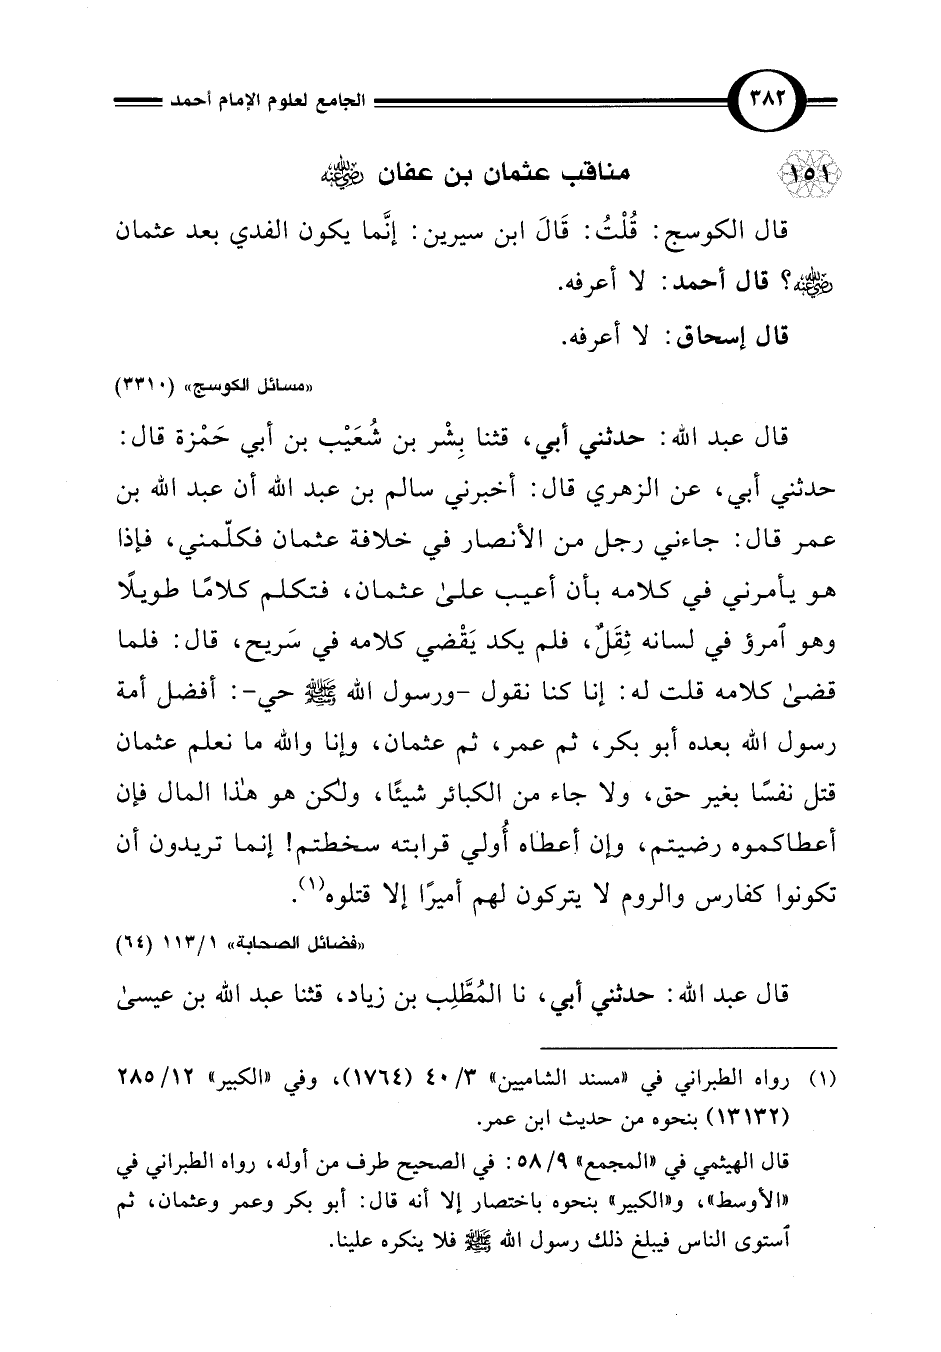 ٣٨٢ الجامع لعلوم الإمام أحمد
١٥١ مناقب عثمان بن عفان رضي الله عنه
قال الكوسج: قُلْتُ: قَالَ ابن سيرين: إنَّما يكون الفدي بعد عثمان
رضي الله عنه؟ قال أحمد: لا أعرفه.
قال إسحاق: لا أعرفه.
«مسائل الكوسج» (٣٣١٠)
قال عبد الله: حدثني أبي، قثنا بِشْر بن شُعَيْب بن أبي حَمْزة قال:
حدثني أبي، عن الزهري قال: أخبرني سالم بن عبد الله أن عبد الله بن
عمر قال: جاءني رجل من الأنصار في خلافة عثمان فكلّمني، فإذا
هو يأمرني في كلامه بأن أعيب علىٰ عثمان، فتكلم كلامًا طويلًا
وهو ٱمرؤ في لسانه ثِقَلٌ، فلم يكد يَقْضي كلامه في سَريح، قال: فلما
قضىٰ كلامه قلت له: إنا كنا نقول -ورسول الله ﷺ حي-: أفضل أمة
رسول الله بعده أبو بكر، ثم عمر، ثم عثمان، وإنا والله ما نعلم عثمان
قتل نفسًا بغير حق، ولا جاء من الكبائر شيئًا، ولكن هو هٰذا المال فإن
أعطاكموه رضيتم، وإن أعطاه أُولي قرابته سخطتم! إنما تريدون أن
تكونوا كفارس والروم لا يتركون لهم أميرًا إلا قتلوه(١).
«فضائل الصحابة» ١/١١٣ (٦٤)
قال عبد الله: حدثني أبي، نا المُطَّلِب بن زياد، قثنا عبد الله بن عيسىٰ
(١) رواه الطبراني في «مسند الشاميين» ٣/٤٠ (١٧٦٤)، وفي «الكبير» ١٢/٢٨٥
(١٣١٣٢) بنحوه من حديث ابن عمر.
قال الهيثمي في «المجمع» ٩/٥٨: في الصحيح طرف من أوله، رواه الطبراني في
«الأوسط»، و«الكبير» بنحوه باختصار إلا أنه قال: أبو بكر وعمر وعثمان، ثم
ٱستوى الناس فيبلغ ذلك رسول الله ﷺ فلا ينكره علينا.